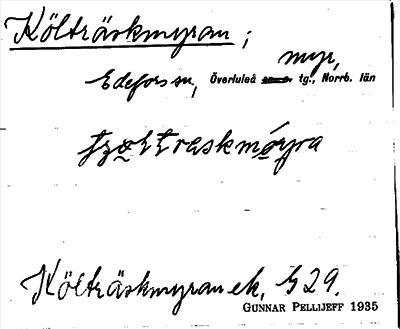 Költräskmyran;
myr,
Edefors sn, Överluleå tg., Norrb. län
Költräskmyran ek. 529.
GUNNAR PELLIJEFF 1935